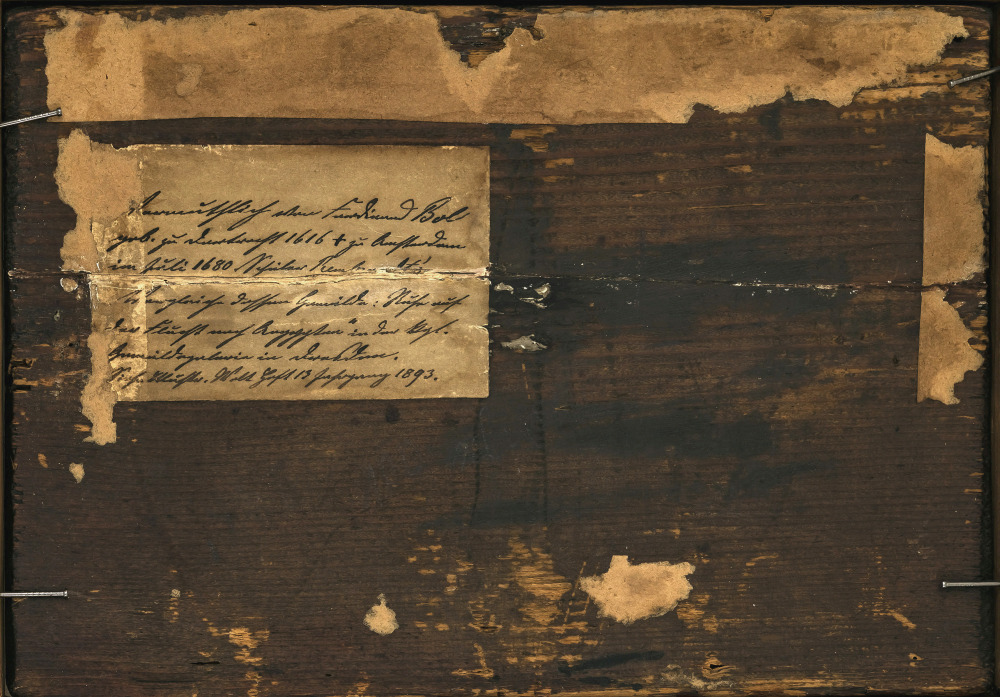 Vermuthlich von Ferdinand Bol
geb. zu Dortrecht 1616 † zu Amsterdam
im Juli 1680 Schüler Rembrandt's
Vergleich dessen Gemälde: Ruhe auf
der Flucht nach Aegypten" in der Kgl.
Gemäldegalerie in Dresden.
Siehe Illustr. Welt Heft 13 Jahrgang 1893.